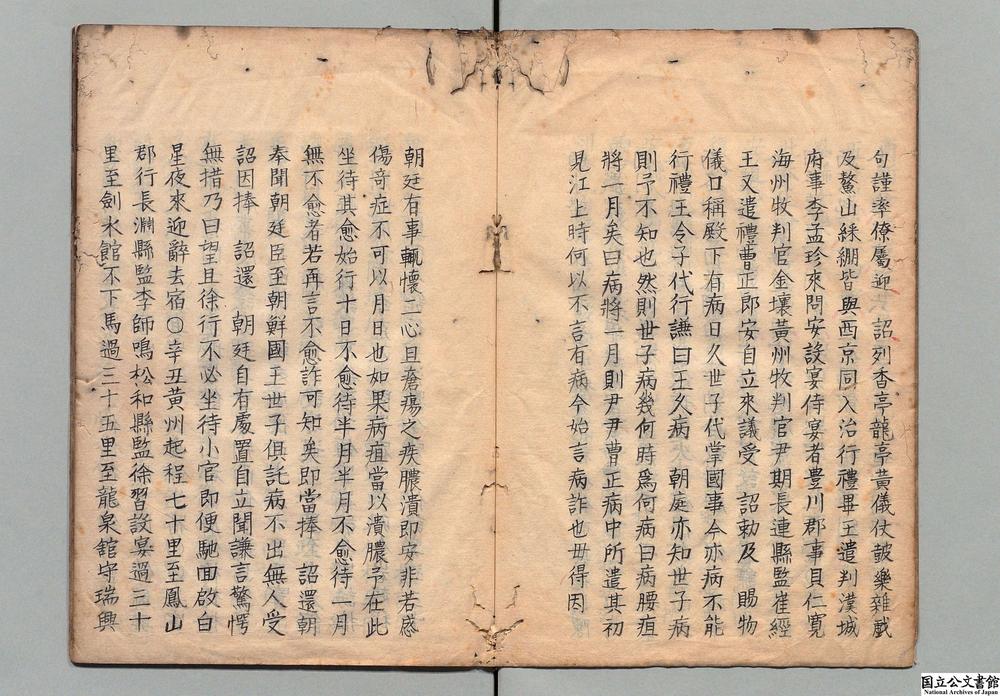 句謹率僚屬迎 詔列香亭龍亭黄儀仗皷樂雜戱
及鰲山綵綳皆與西京同入治行禮畢王遣判漢城
府事李孟珍來問安設宴侍宴者豊川郡事貝仁寛
海州牧判官金壤黄州牧判官尹期長連縣監崔經
王又遣禮曹正郎安自立來議受 詔勅及 賜物
儀口稱殿下有病日久世子代掌國事今亦病不能
行禮王令子代行謙曰王久病 朝庭亦知世子病
則予不知也然則世子病幾何時為何病曰病腰疽
將一月矣曰病將一月則尹尹曹正病中所遣其初
見江上時何以不言有病今始言病詐也毋得因
朝廷有事輒懷二心且瘡瘍之疾膿潰即安非若感
傷竒症不可以月日也如果病疽當以潰膿予在此
坐待其愈始行十日不愈待半月半月不愈待一月
無不愈者若再言不愈詐可知矣即當捧 詔還朝
奉聞朝廷臣至朝鮮國王世子俱託病不出無人受
詔因捧 詔還 朝廷自有處置自立聞謙言驚愕
無措乃曰望且徐行不必坐待小官即便馳面啟白
星夜來迎辭去宿〇辛丑黄州起程七十里至鳳山
郡行長淵縣監李師鳴松和縣監徐習設宴過三十
里至劍水館不下馬過三十五里至龍泉舘守瑞興
国立公文書館
National Archives of Japan